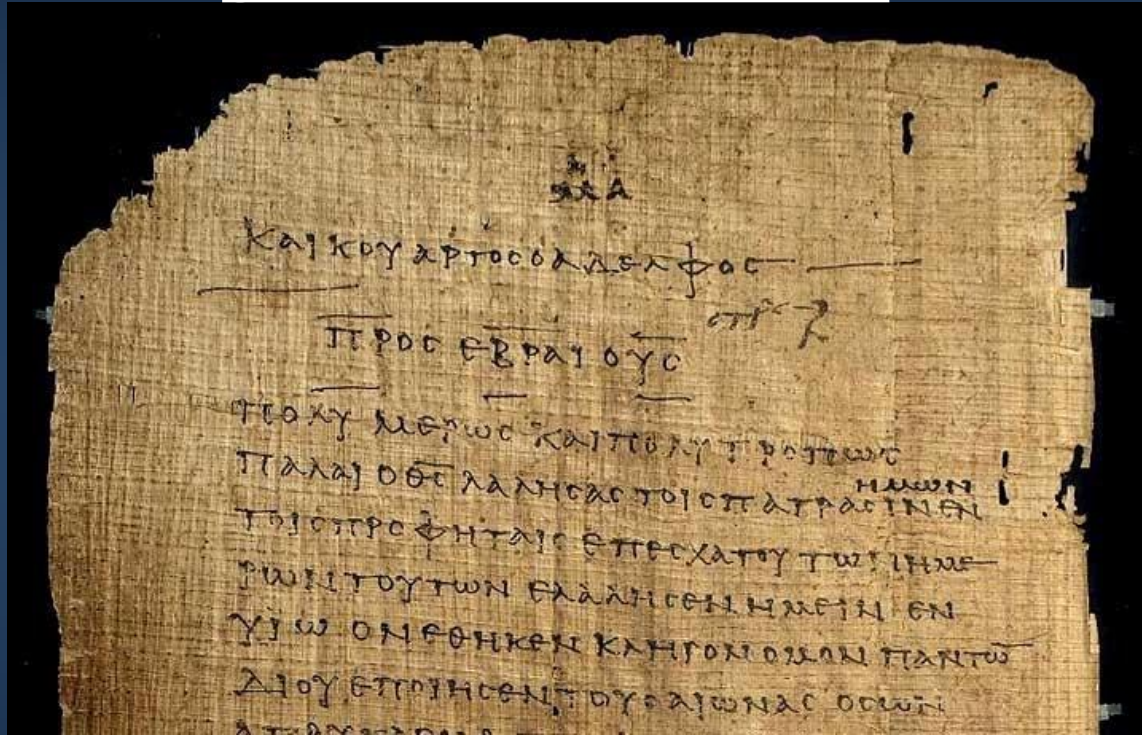 ΜΑ
ΚΑΙ ΚΟΥΑΡΤΟϹ Ο ΑΔΕΛΦΟϹ
ΠΡΟϹ ΕΒΡΑΙΟΥϹ
ΠΟΛΥΜΕΡΩϹ ΚΑΙ ΠΟΛΥΤΡΟΠΩϹ
ΗΜΩΝ
ΠΑΛΑΙ Ο Θ̅Ϲ̅ ΛΑΛΗϹΑϹ ΤΟΙϹ ΠΑΤΡΑϹΙΝ ΕΝ
ΤΟΙϹ ΠΡΟΦΗΤΑΙϹ ΕΠ ΕϹΧΑΤΟΥ ΤΩΝ ΗΜΕ
ΡΩΝ ΤΟΥΤΩΝ ΕΛΑΛΗϹΕΝ ΗΜΕΙΝ ΕΝ
ΥΙΩ ΟΝ ΕΘΗΚΕΝ ΚΛΗΡΟΝΟΜΟΝ ΠΑΝΤΩ̅
ΔΙ ΟΥ ΕΠΟΙΗϹΕΝ ΤΟΥϹ ΑΙΩΝΑϹ ΟϹ ΩΝ